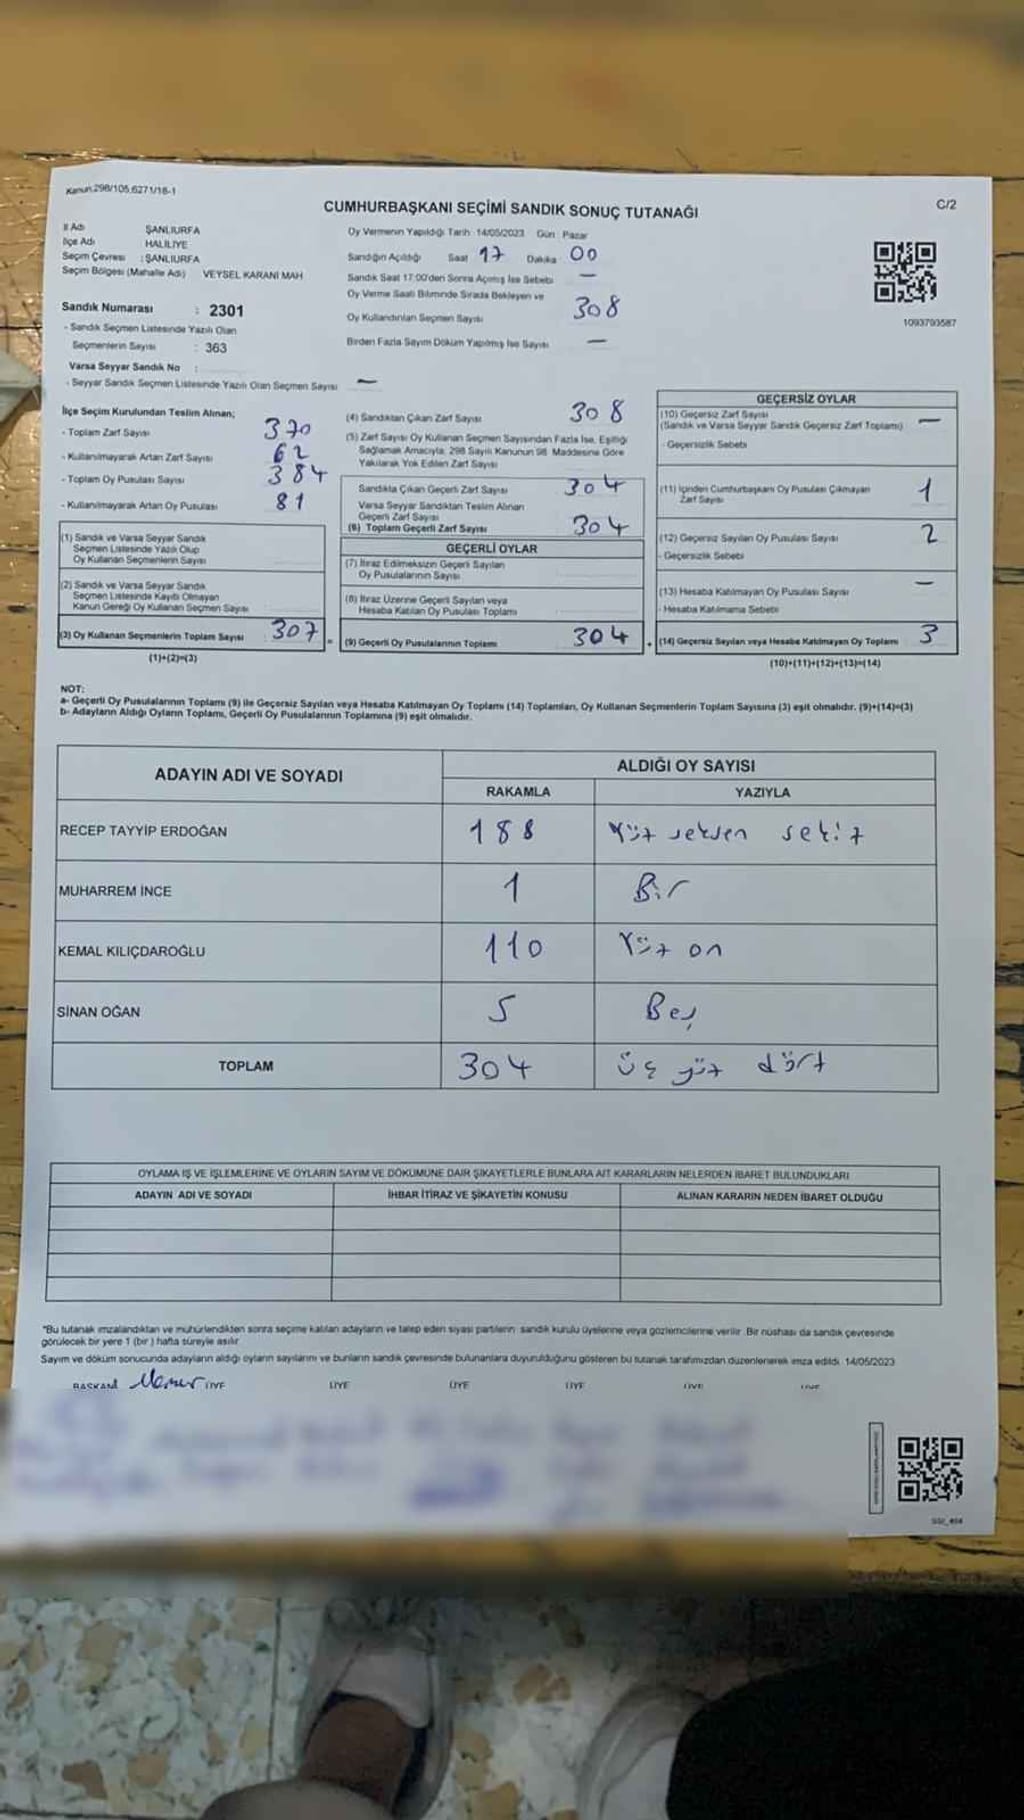 Kanun:298/105,6271/18-1
C/2
CUMHURBAŞKANI SEÇİMİ SANDIK SONUÇ TUTANAĞI
İl Adı ŞANLIURFA
İlçe Adı HALİLİYE
Seçim Çevresi : ŞANLIURFA
Seçim Bölgesi (Mahalle Adı) VEYSEL KARANİ MAH
Sandık Numarası : 2301
- Sandık Seçmen Listesinde Yazılı Olan
Seçmenlerin Sayısı : 363
Varsa Seyyar Sandık No :
- Seyyar Sandık Seçmen Listesinde Yazılı Olan Seçmen Sayısı —
Oy Vermenin Yapıldığı Tarih 14/05/2023 Gün: Pazar
Sandığın Açıldığı Saat 17 Dakika 00
Sandık Saat 17:00'den Sonra Açılmış İse Sebebi —
Oy Verme Saati Bitiminde Sırada Bekleyen ve
Oy Kullandırılan Seçmen Sayısı 308
Birden Fazla Sayım Döküm Yapılmış İse Sayısı —
1093793587
İlçe Seçim Kurulundan Teslim Alınan;
- Toplam Zarf Sayısı 370
- Kullanılmayarak Artan Zarf Sayısı 62
- Toplam Oy Pusulası Sayısı 384
- Kullanılmayarak Artan Oy Pusulası 81
(1) Sandık ve Varsa Seyyar Sandık
Seçmen Listesinde Yazılı Olup
Oy Kullanan Seçmenlerin Sayısı
(2) Sandık ve Varsa Seyyar Sandık
Seçmen Listesinde Kayıtlı Olmayan
Kanun Gereği Oy Kullanan Seçmen Sayısı
(3) Oy Kullanan Seçmenlerin Toplam Sayısı 307 =
(1)+(2)=(3)
(4) Sandıktan Çıkan Zarf Sayısı 308
(5) Zarf Sayısı Oy Kullanan Seçmen Sayısından Fazla İse, Eşitliği
Sağlamak Amacıyla; 298 Sayılı Kanunun 98. Maddesine Göre
Yakılarak Yok Edilen Zarf Sayısı
Sandıkta Çıkan Geçerli Zarf Sayısı 304
Varsa Seyyar Sandıktan Teslim Alınan
Geçerli Zarf Sayısı
(6) Toplam Geçerli Zarf Sayısı 304
GEÇERLİ OYLAR
(7) İtiraz Edilmeksizin Geçerli Sayılan
Oy Pusulalarının Sayısı
(8) İtiraz Üzerine Geçerli Sayılan veya
Hesaba Katılan Oy Pusulası Toplamı
(9) Geçerli Oy Pusulalarının Toplamı 304 +
GEÇERSİZ OYLAR
(10) Geçersiz Zarf Sayısı
(Sandık ve Varsa Seyyar Sandık Geçersiz Zarf Toplamı) —
- Geçersizlik Sebebi
(11) İçinden Cumhurbaşkanı Oy Pusulası Çıkmayan
Zarf Sayısı 1
(12) Geçersiz Sayılan Oy Pusulası Sayısı 2
- Geçersizlik Sebebi
(13) Hesaba Katılmayan Oy Pusulası Sayısı —
- Hesaba Katılmama Sebebi
(14) Geçersiz Sayılan veya Hesaba Katılmayan Oy Toplamı 3
(10)+(11)+(12)+(13)=(14)
NOT:
a- Geçerli Oy Pusulalarının Toplamı (9) ile Geçersiz Sayılan veya Hesaba Katılmayan Oy Toplamı (14) Toplamları, Oy Kullanan Seçmenlerin Toplam Sayısına (3) eşit olmalıdır. (9)+(14)=(3)
b- Adayların Aldığı Oyların Toplamı, Geçerli Oy Pusulalarının Toplamına (9) eşit olmalıdır.
ADAYIN ADI VE SOYADI ALDIĞI OY SAYISI
RAKAMLA YAZIYLA
RECEP TAYYİP ERDOĞAN 188 Yüz seksen sekiz
MUHARREM İNCE 1 Bir
KEMAL KILIÇDAROĞLU 110 Yüz on
SİNAN OĞAN 5 Beş
TOPLAM 304 üç yüz dört
OYLAMA İŞ VE İŞLEMLERİNE VE OYLARIN SAYIM VE DÖKÜMÜNE DAİR ŞİKAYETLERLE BUNLARA AİT KARARLARIN NELERDEN İBARET BULUNDUKLARI
ADAYIN ADI VE SOYADI İHBAR İTİRAZ VE ŞİKAYETİN KONUSU ALINAN KARARIN NEDEN İBARET OLDUĞU
*Bu tutanak imzalandıktan ve mühürlendikten sonra seçime katılan adayların ve talep eden siyasi partilerin sandık kurulu üyelerine veya gözlemcilerine verilir. Bir nüshası da sandık çevresinde
görülecek bir yere 1 (bir) hafta süreyle asılır.
Sayım ve döküm sonucunda adayların aldığı oyların sayılarını ve bunların sandık çevresinde bulunanlara duyurulduğunu gösteren bu tutanak tarafımızdan düzenlenerek imza edildi. 14/05/2023
BAŞKAN ÜYE ÜYE ÜYE ÜYE ÜYE ÜYE